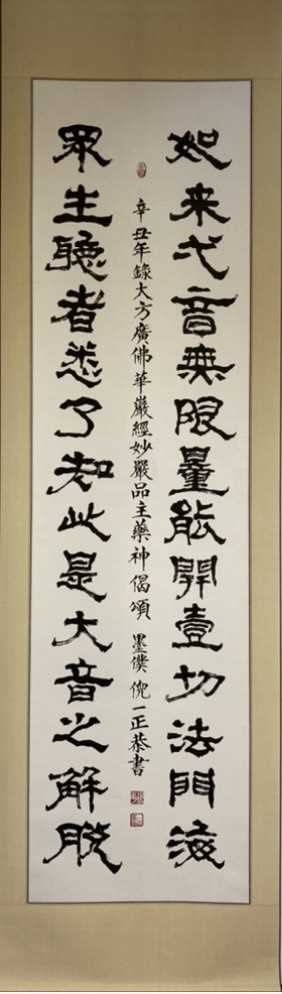 如来弌音無限量能開壹切法門海
眾生聽者悉了知此是大音之解脫
辛丑年錄大方廣佛華嚴經妙嚴品主藥神偈頌 墨僕倪一正恭書